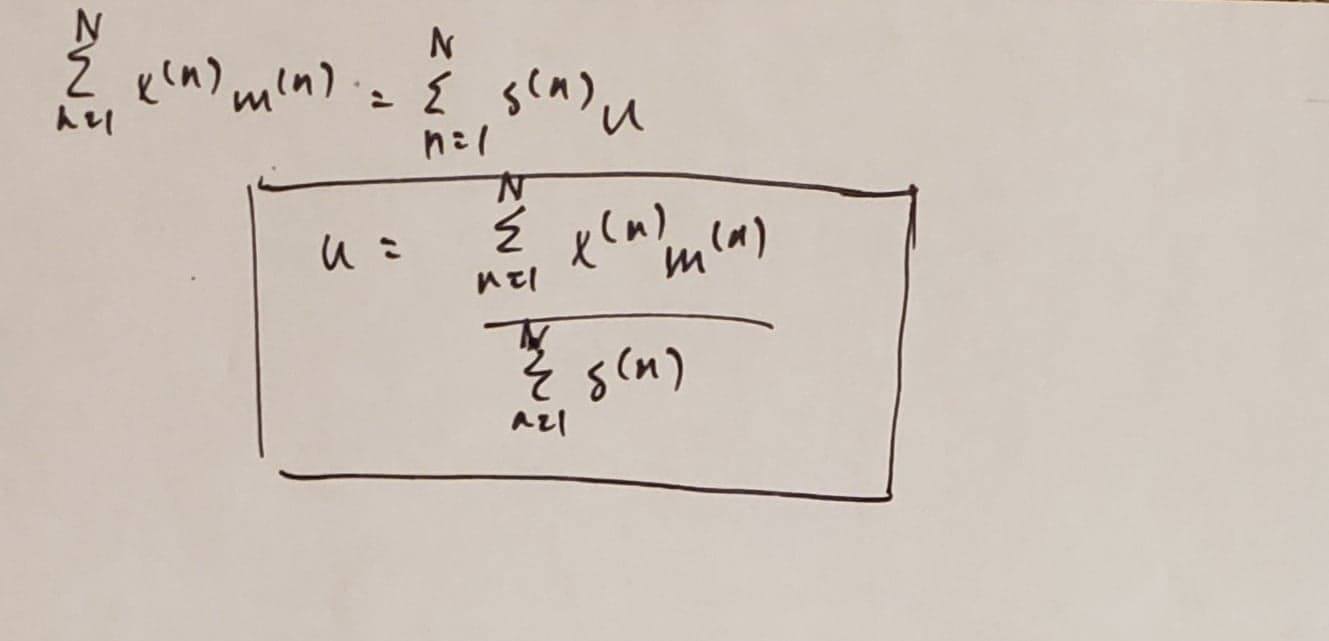 \sum_{n=1}^{N} x^{(n)} m^{(n)} = \sum_{n=1}^{N} s^{(n)} u
u = \frac{\sum_{n=1}^{N} x^{(n)} m^{(n)}}{\sum_{n=1}^{N} s^{(n)}}